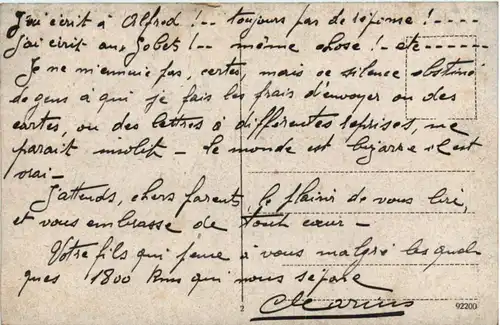 J'ai écrit à Alfred! -- toujours pas de réponse! ----
j'ai écrit aux Gobet! -- même chose! - etc ------
Je ne m'ennuie pas, certes, mais ce silence obstiné
de gens à qui je fais les frais d'envoyer ou des
cartes, ou des lettres à différentes reprises, me
parait insolite - le monde est bizarre c'est
vrai -
J'attends, chers parents, le plaisir de vous lire,
et vous embrasse de tout coeur -
Votre fils qui pense à vous malgré les quel-
ques 1800 kms qui nous sépare
Marius
2
92200